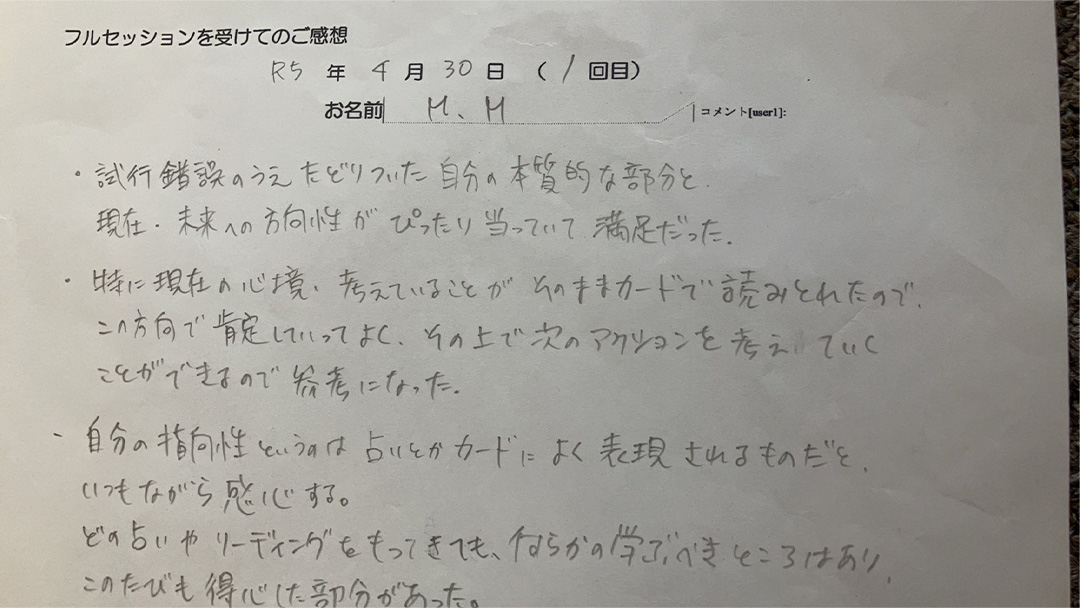 フルセッションを受けてのご感想
R5 年 4 月 30 日 ( 1 回目)
お名前 M、M コメント[user1]:
・試行錯誤のうえたどりついた自分の本質的な部分と、
現在・未来への方向性がぴったり当っていて満足だった。
・特に現在の心境、考えていることがそのままカードで読みとれたので、
この方向で肯定していってよく、その上で次のアクションを考えていく
ことができるので参考になった。
- 自分の指向性というのは占いとかカードによく表現されるものだと、
いつもながら感心する。
どの占いやリーディングをもってきても、何らかの学ぶべきところはあり、
このたびも得心した部分があった。